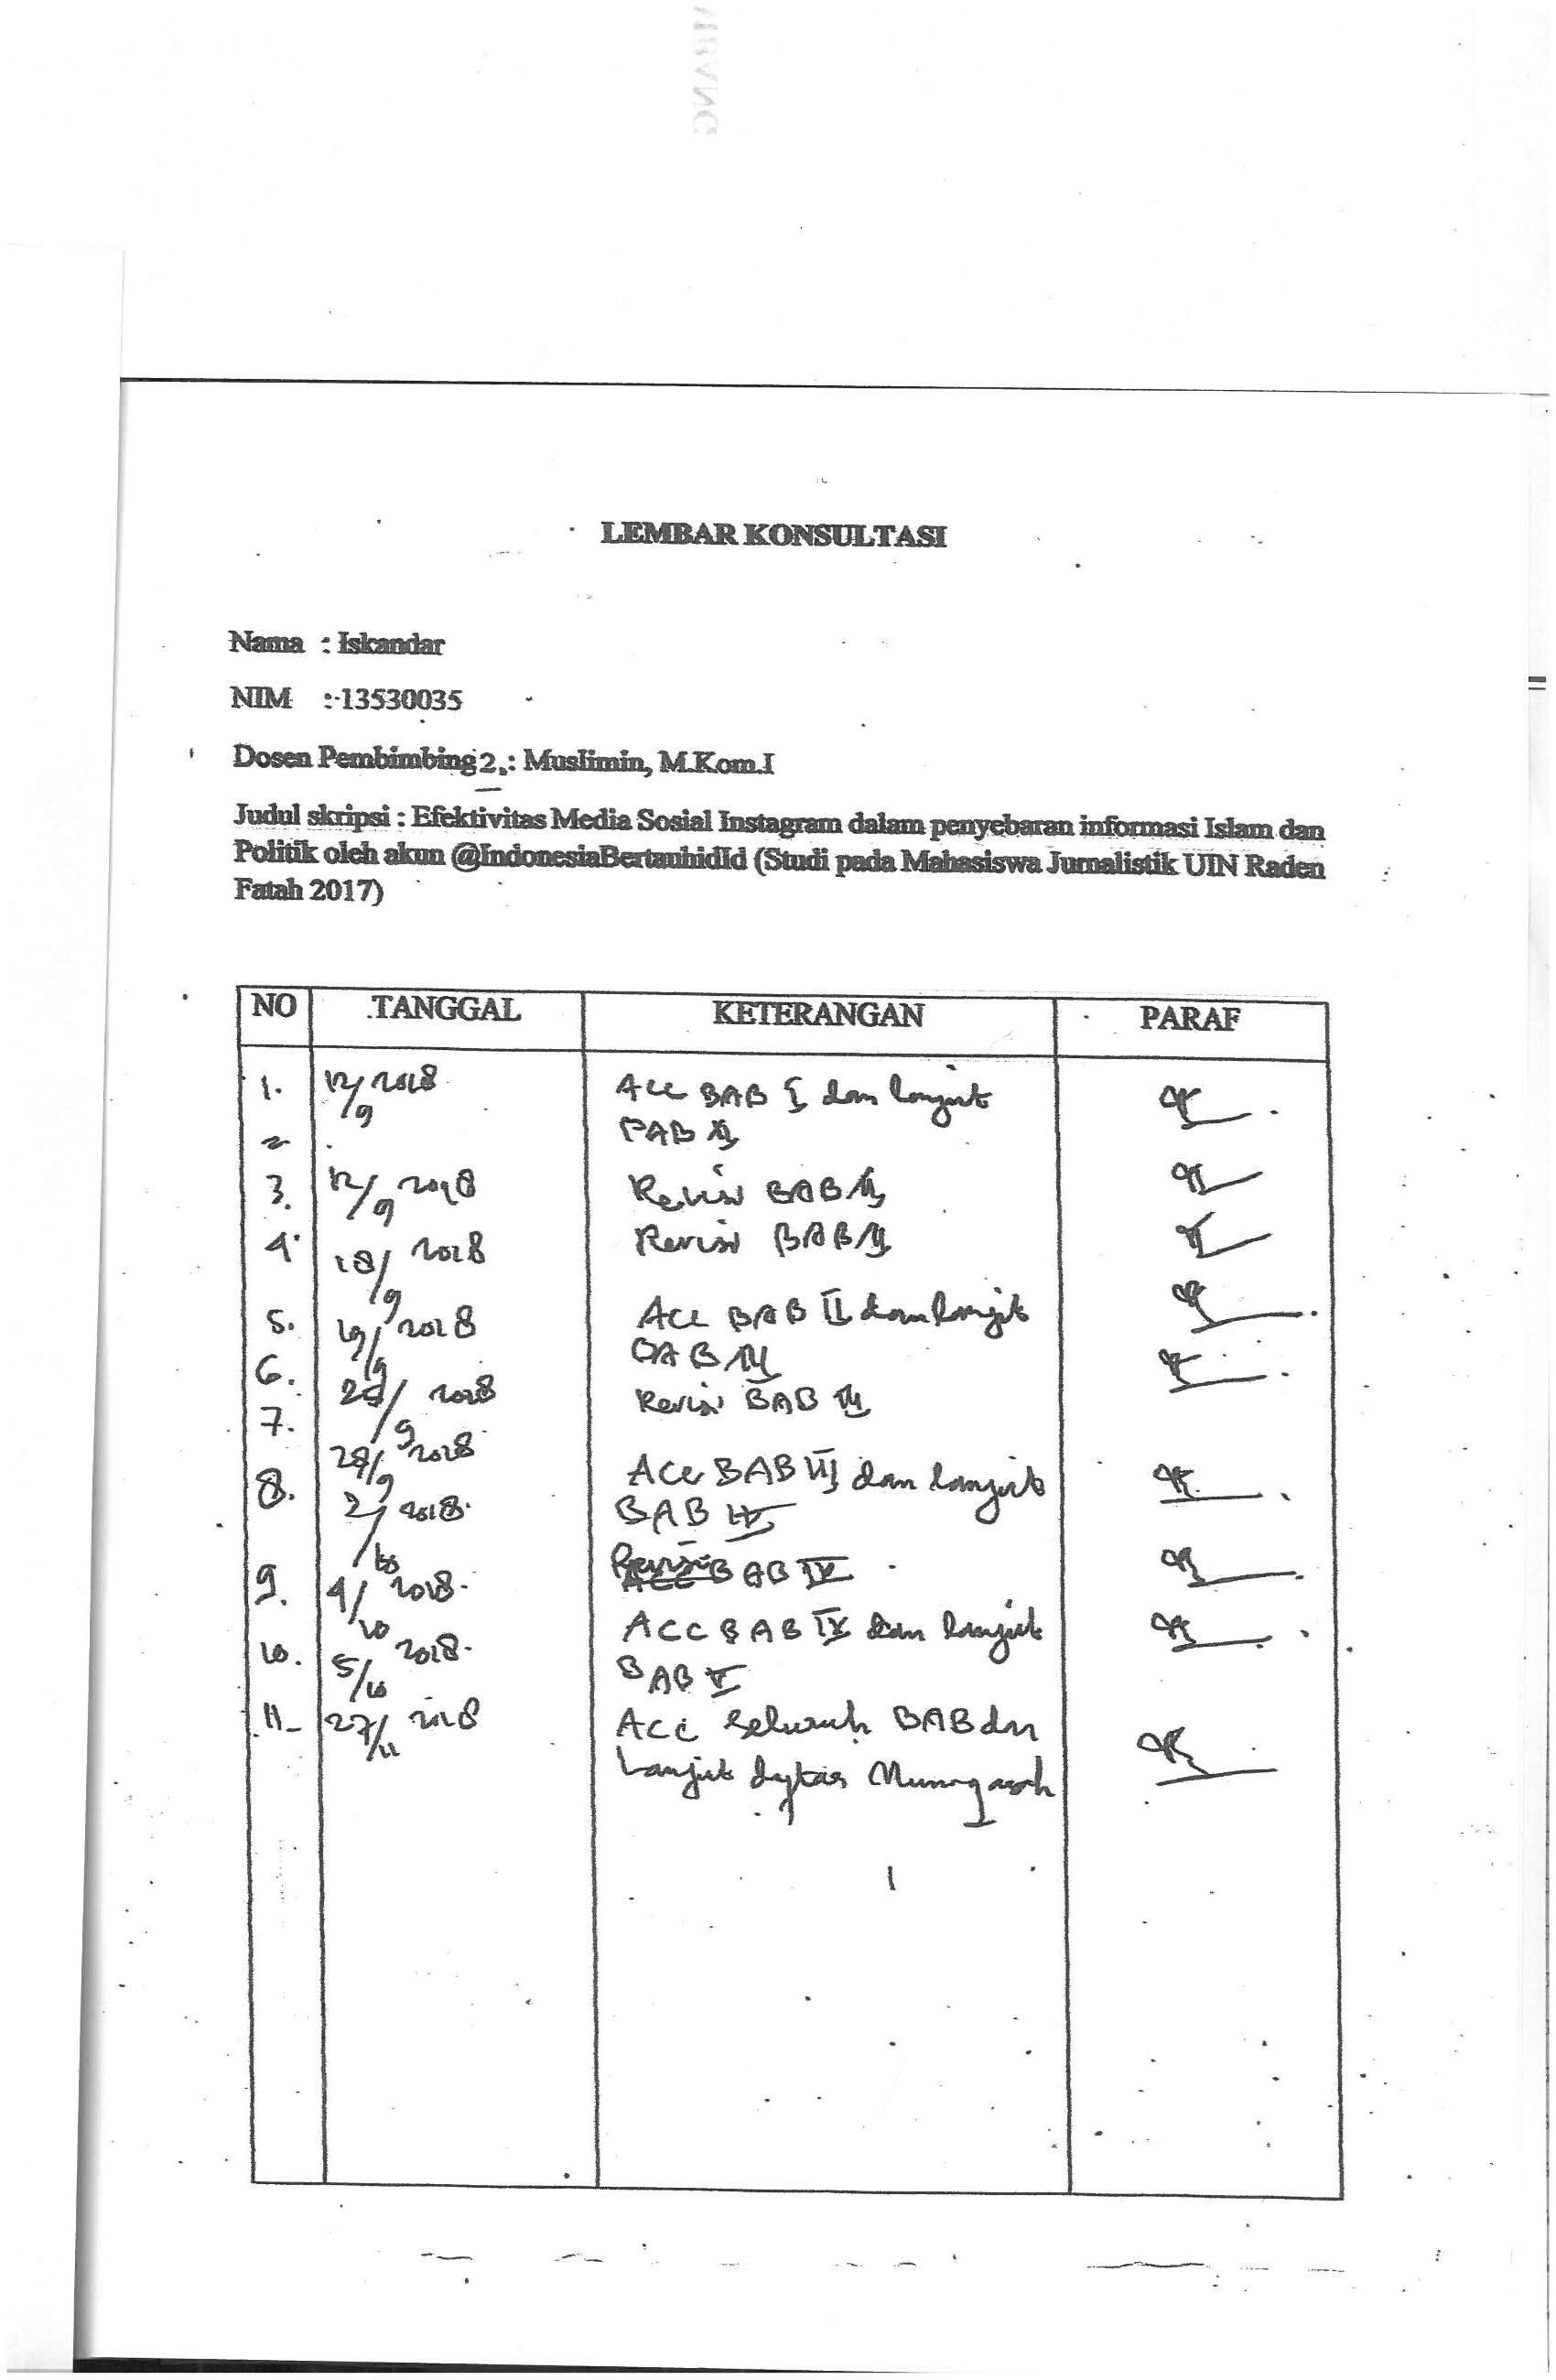 LEMBAR KONSULTASI
Nama : Iskandar
NIM : 13530035
Dosen Pembimbing 2. : Muslimin, M.Kom.I
Judul skripsi : Efektivitas Media Sosial Instagram dalam penyebaran informasi Islam dan
Politik oleh akun @IndonesiaBertauhidId (Studi pada Mahasiswa Jurnalistik UIN Raden
Fatah 2017)
NO TANGGAL KETERANGAN PARAF
1. 12/9 2018 Acc BAB I dan lanjut
BAB II
2
3. 12/9 2018 Revisi BAB II
4. 18/9 2018 Revisi BAB II
5. 19/9 2018 Acc BAB II dan lanjut
BAB III
6. /9 2018 Revisi BAB III
7. 28/9 2018 Acc BAB III dan lanjut
BAB IV
8. 2/10 2018. Revisi BAB IV
9. 4/10 2018. ACC BAB IV dan lanjut
BAB V
10. 5/10 2018.
11. 27/11 2018 Acc seluruh BAB dan
Lanjut Munaqasah